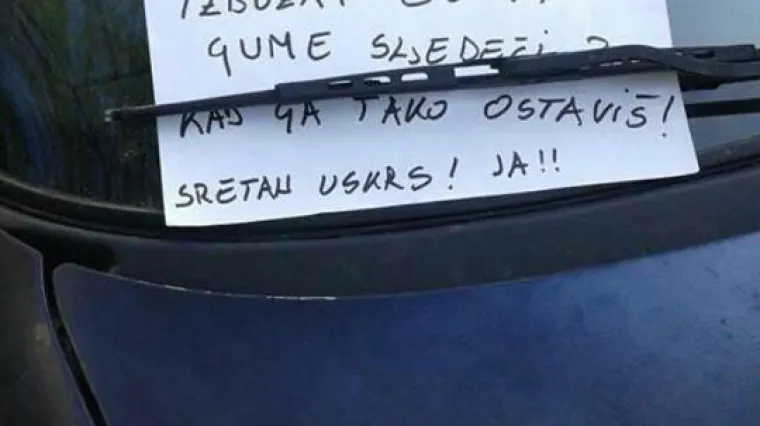 GUME SLJEDEĆI
KAD GA TAKO OSTAVIŠ!
SRETAN USKRS! JA!!